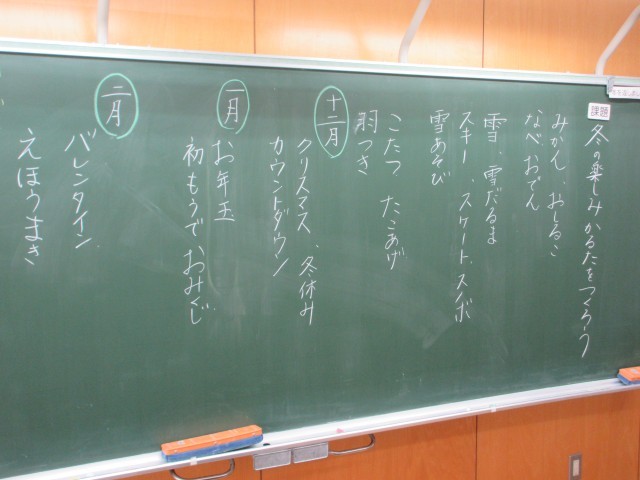 課題
冬の楽しみかるたをつくろう
みかん、おしるこ
なべ、おでん
雪、雪だるま
スキー、スケート、スノボ
雪あそび
こたつ たこあげ
羽つき
十二月
クリスマス、冬休み
カウントダウン
一月
お年玉
初もうで、おみくじ
二月
バレンタイン
えほうまき